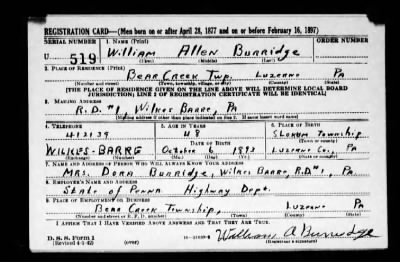 REGISTRATION CARD—(Men born on or after April 28, 1877 and on or before February 16, 1897)
SERIAL NUMBER 1. NAME (Print) ORDER NUMBER
U 519 William Allen Burridge
(First) (Middle) (Last)
2. PLACE OF RESIDENCE (Print)
Bear Creek Twp. Luzerne Pa
(Number and street) (Town, township, village, or city) (County) (State)
[THE PLACE OF RESIDENCE GIVEN ON THE LINE ABOVE WILL DETERMINE LOCAL BOARD
JURISDICTION; LINE 2 OF REGISTRATION CERTIFICATE WILL BE IDENTICAL]
3. MAILING ADDRESS
R.D. #1, Wilkes Barre, Pa
[Mailing address if other than place indicated on line 2. If same insert word same]
4. TELEPHONE 5. AGE IN YEARS 6. PLACE OF BIRTH
48 Slokum Township
DATE OF BIRTH (Town or county)
WILKES-BARRE October 6 1893 Luzerne Co., Pa
(Exchange) (Number) (Mo.) (Day) (Yr.) (State or country)
7. NAME AND ADDRESS OF PERSON WHO WILL ALWAYS KNOW YOUR ADDRESS
Mrs. Dora Burridge, Wilkes Barre, R.D.#1, Pa
8. EMPLOYER'S NAME AND ADDRESS
State of Penna Highway Dept.
9. PLACE OF EMPLOYMENT OR BUSINESS
Bear Creek Township, Luzerne Pa
(Number and street or R. F. D. number) (Town) (County) (State)
I AFFIRM THAT I HAVE VERIFIED ABOVE ANSWERS AND THAT THEY ARE TRUE.
D. S. S. Form 1
(Revised 4-1-42) (over) William A Burridge
(Registrant's signature)